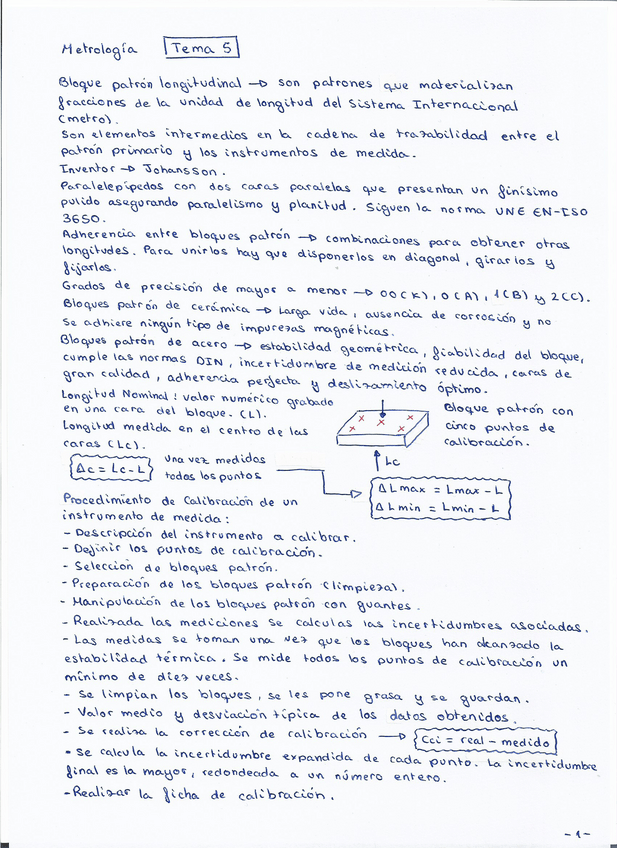 Metrología Tema 5
Bloque patrón longitudinal → son patrones que materializan
fracciones de la unidad de longitud del Sistema Internacional
(metro).
Son elementos intermedios en la cadena de trazabilidad entre el
patrón primario y los instrumentos de medida.
Inventor → Johansson.
Paralelepípedos con dos caras paralelas que presentan un finísimo
pulido asegurando paralelismo y planitud. Siguen la norma UNE EN-ISO
3650.
Adherencia entre bloques patrón → combinaciones para obtener otras
longitudes. Para unirlos hay que disponerlos en diagonal, girarlos y
fijarlos.
Grados de precisión de mayor a menor → 00(K), 0(A), 1(B) y 2(C).
Bloques patrón de cerámica → Larga vida, ausencia de corrosión y no
se adhiere ningún tipo de impurezas magnéticas.
Bloques patrón de acero → estabilidad geométrica, fiabilidad del bloque,
cumple las normas DIN, incertidumbre de medición reducida, caras de
gran calidad, adherencia perfecta y deslizamiento óptimo.
Longitud Nominal: valor numérico grabado
en una cara del bloque. (L).
Longitud medida en el centro de las
caras (Lc).
Bloque patrón con
cinco puntos de
calibración.
Lc
Δc = Lc - L
una vez medidos
todos los puntos
ΔLmax = Lmax - L
ΔLmin = Lmin - L
Procedimiento de Calibración de un
instrumento de medida:
- Descripción del instrumento a calibrar.
- Definir los puntos de calibración.
- Selección de bloques patrón.
- Preparación de los bloques patrón (limpieza).
- Manipulación de los bloques patrón con guantes.
- Realizada las mediciones se calculas las incertidumbres asociadas.
- Las medidas se toman una vez que los bloques han alcanzado la
estabilidad térmica. Se mide todos los puntos de calibración un
mínimo de diez veces.
- Se limpian los bloques, se les pone grasa y se guardan.
- Valor medio y desviación típica de los datos obtenidos.
- Se realiza la corrección de calibración → Cci = real - medido
- Se calcula la incertidumbre expandida de cada punto. La incertidumbre
final es la mayor, redondeada a un número entero.
- Realizar la ficha de calibración.
-1-